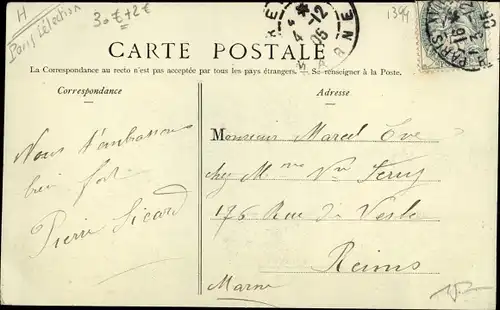 H
Paris Sélection
30€ + 2€
1399
4 12
06
MARNE
CARTE POSTALE
La Correspondance au recto n'est pas acceptée par tous les pays étrangers. – Se renseigner à la Poste.
Correspondance
Adresse
Nous t'embrassons
bien fort
Pierre Sicard
Monsieur Marcel Eve
chez Mme Vve Ferry
176 Rue de Vesle
Reims
Marne